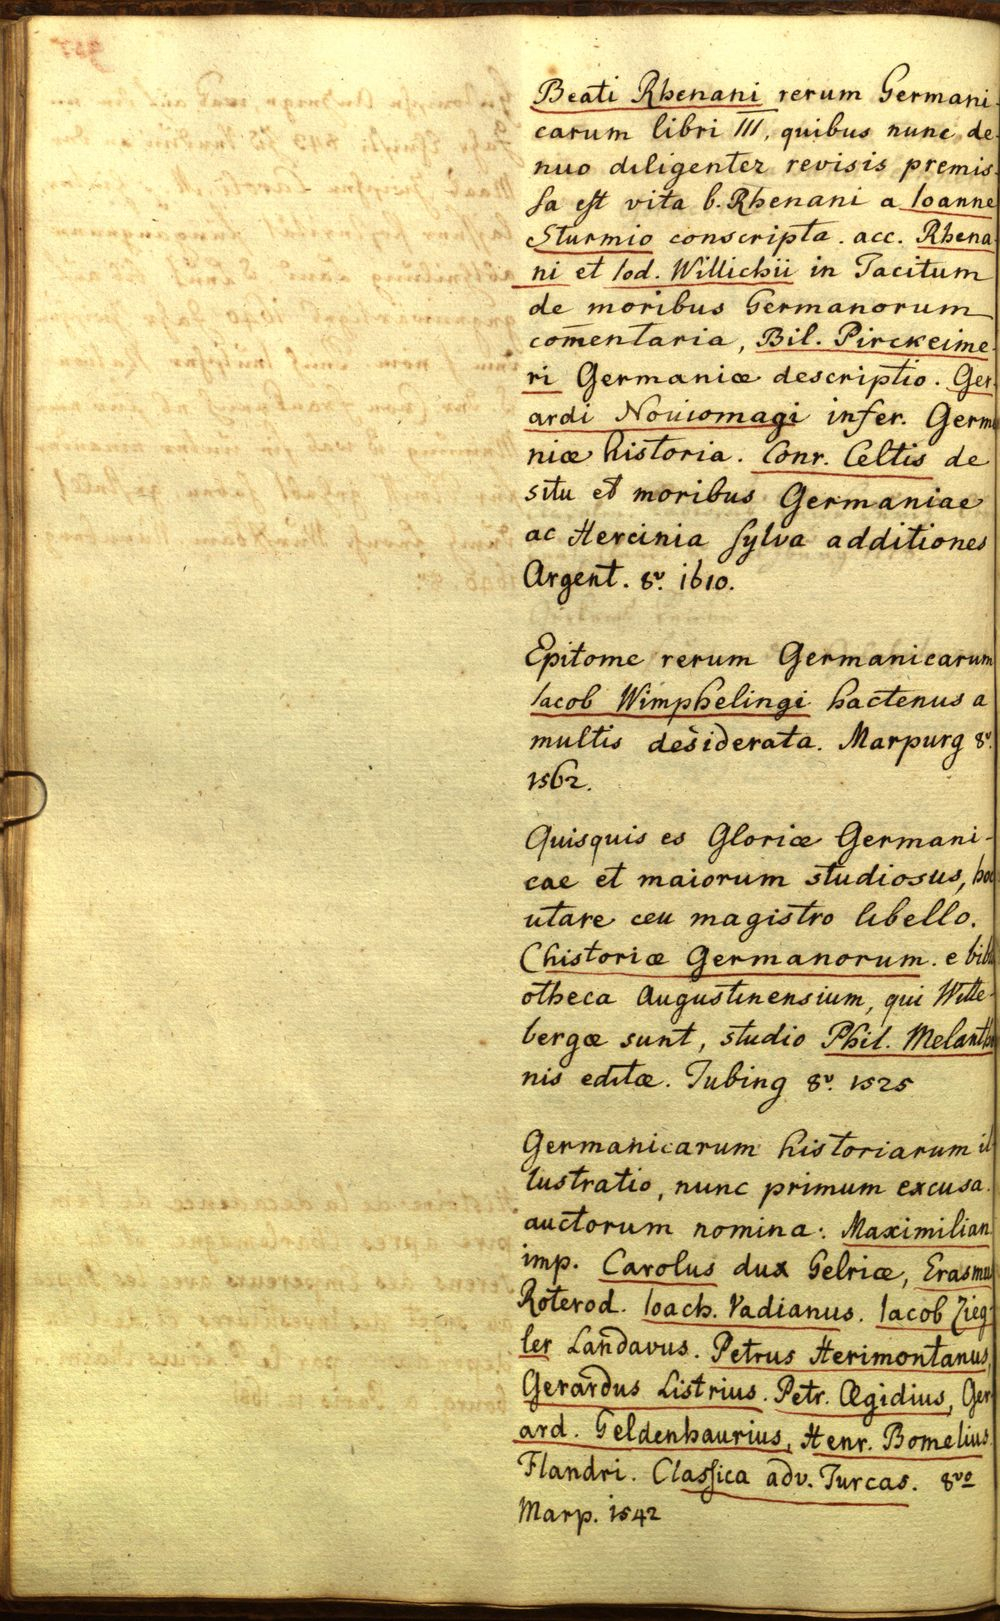 Beati Rhenani rerum Germani-
carum libri III, quibus nunc de-
nuo diligenter revisis premis-
sa est vita b. Rhenani a Ioanne
Sturmio conscripta. acc. Rhena-
ni et Iod. Willichii in Tacitum
de moribus Germanorum
com̄entaria, Bil. Pirckeime-
ri Germaniæ descriptio. Ger-
ardi Nouiomagi infer. Germa
niæ historia. Conr. Celtis de
situ et moribus Germaniae
ac Hercinia sylva additiones
Argent. 8v. 1610.

Epitome rerum Germanicarum
Iacob Wimphelingi hactenus a
multis desiderata. Marpurg 8v.
1562.

Quisquis es Gloriæ Germani-
cae et maiorum studiosus, hoc
utare ceu magistro libello.
(historiæ Germanorum. e bibli
otheca Augustinensium, qui Witte-
bergæ sunt, studio Phil. Melantho
nis editæ. Tubing 8v. 1525

Germanicarum historiarum il
lustratio, nunc primum excusa.
auctorum nomina: Maximilian
imp. Carolus dux Gelriæ, Erasmus
Roterod. Ioach. Vadianus. Iacob Zieg-
ler Landavus. Petrus Herimontanus,
Gerardus Listrius. Petr. Ægidius, Ger-
ard. Geldenhaurius, Henr. Bomelius.
Flandri. Classica adv. Turcas. 8vo
Marp. 1542